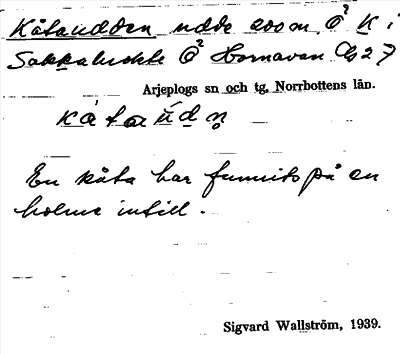 Kåtaudden udde 200 m. Ö² K i
Sakkaluokte Ö² Hornavan Gg 27
Arjeplogs sn och tg, Norrbottens län.
kåtaúdn̥
En kåta har funnits på en
holme intill.
Sigvard Wallström, 1939.